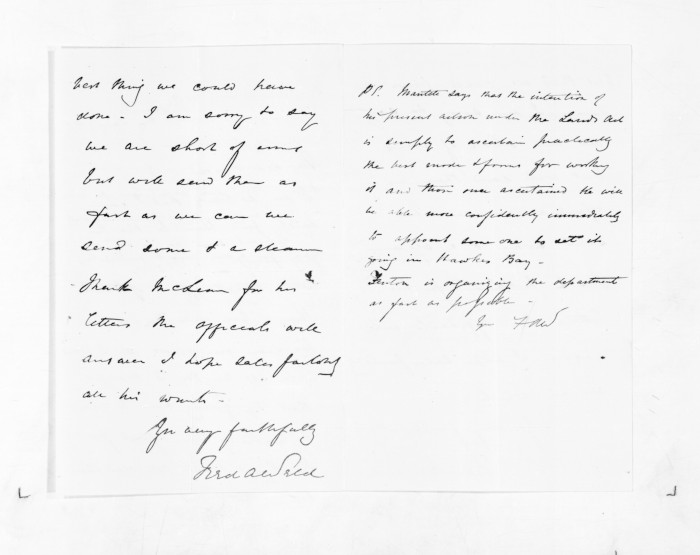 best thing we could have
done - I am sorry to say
we are short of arms
but will send them as
fast as we can we
send some & a steam
Thank McLean for his
letters the officials will
answer I hope satisfactorily
all his wants -
Yrs very faithfully
Fred A Weld
PS. Mantell says that the intention of
his present action under the Lands Act
is simply to ascertain practically
the best mode & forms for working
it and those once ascertained he will
be able more confidently immediately
to appoint some one to set it
going in Hawkes Bay -
Fenton is organizing the department
as fast as possible -
Yrs FAW